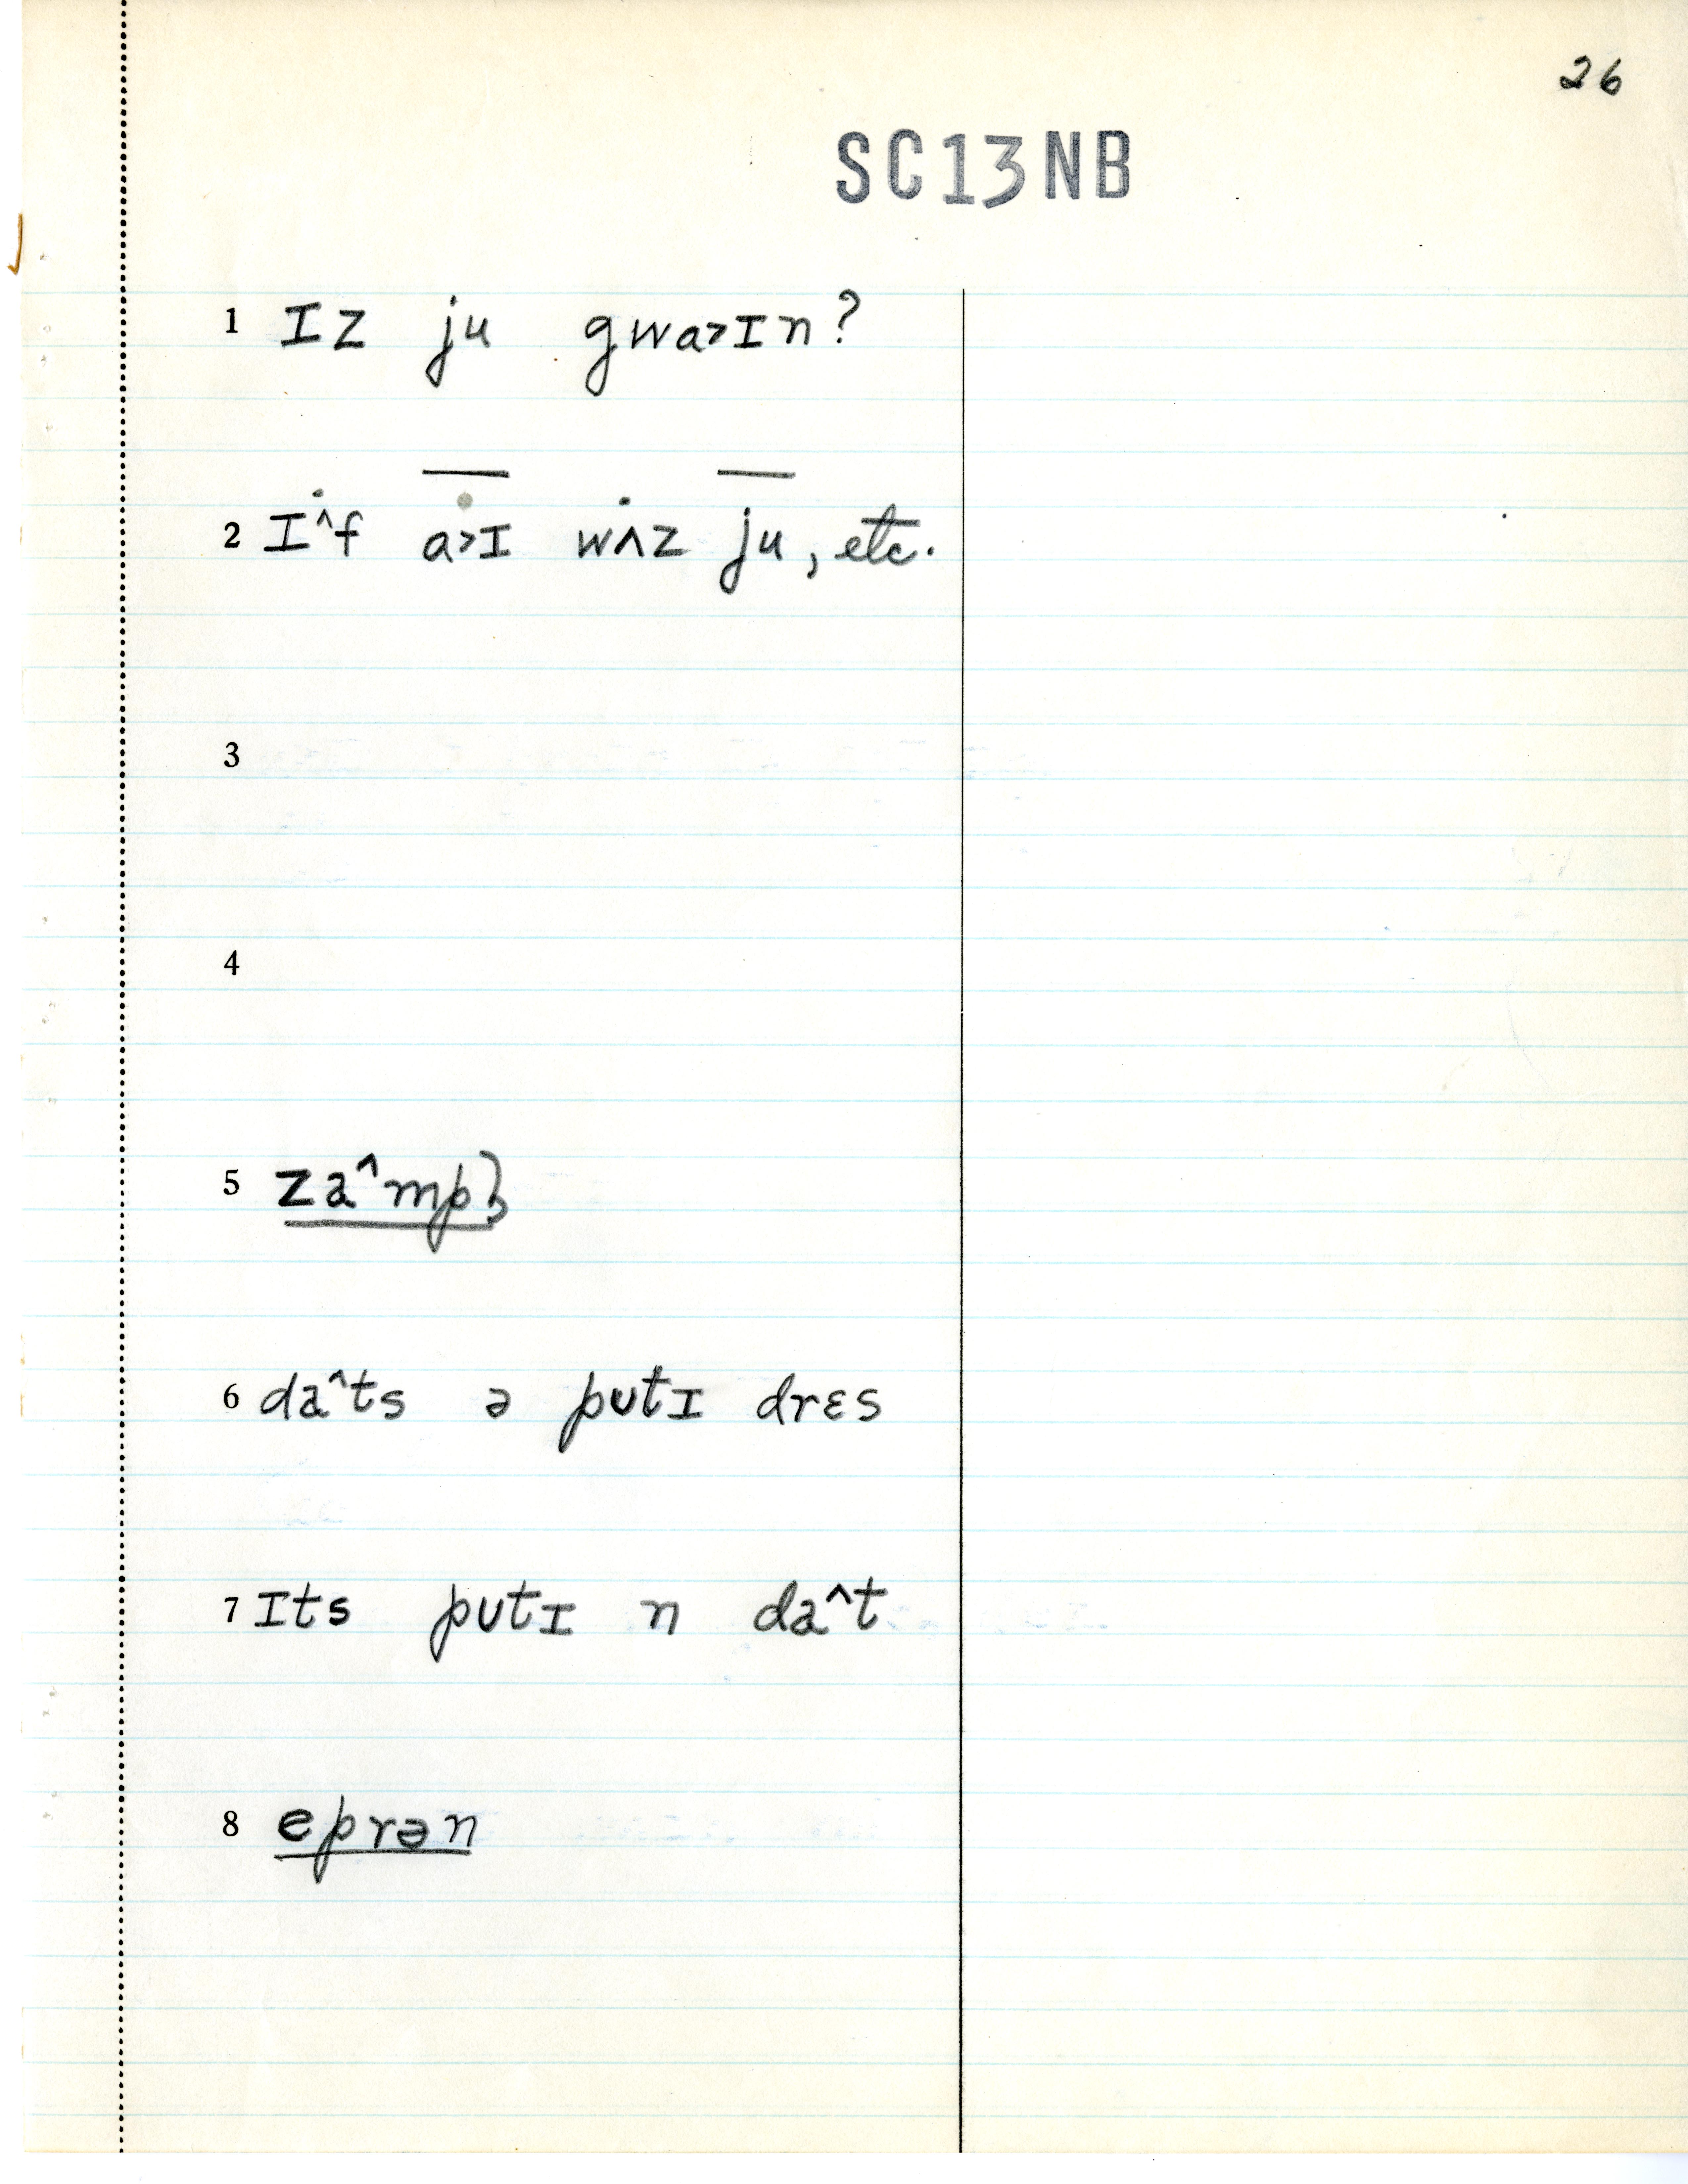 26
SC13NB
1 ɪz ju gwa>ɪn?
2 ɪ^f a>ɪ wʌz ju, etc.
3
4
5 za^mpl̩
6 da^ts ə pʊtɪ drɛs
7 ɪts pʊtɪ n da^t
8 eprən